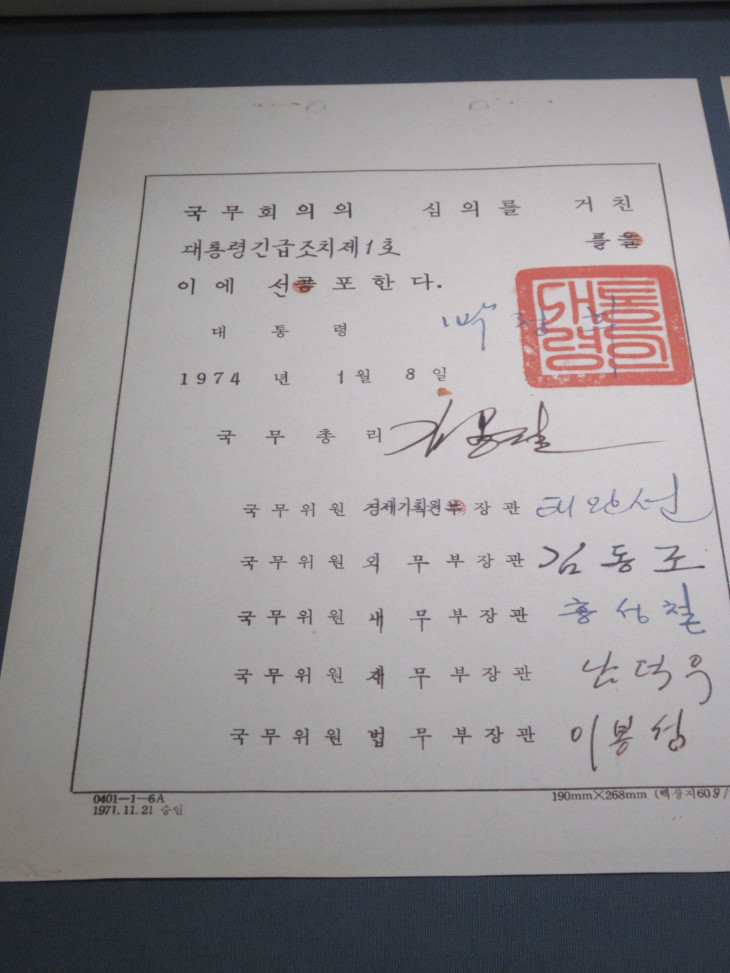 국무회의의 심의를 거친
대통령긴급조치제1호 를을
이에 선공포한다.
대통령 박정희
대통령의
1974년 1월 8일
국무총리 김종필
국무위원 경제기획원부장관 태완선
국무위원 외무부장관 김동조
국무위원 내무부장관 홍성철
국무위원 재무부장관 남덕우
국무위원 법무부장관 이봉성
0401-1-6A
1971. 11. 21 승인
190mm×268mm (백상지60g/